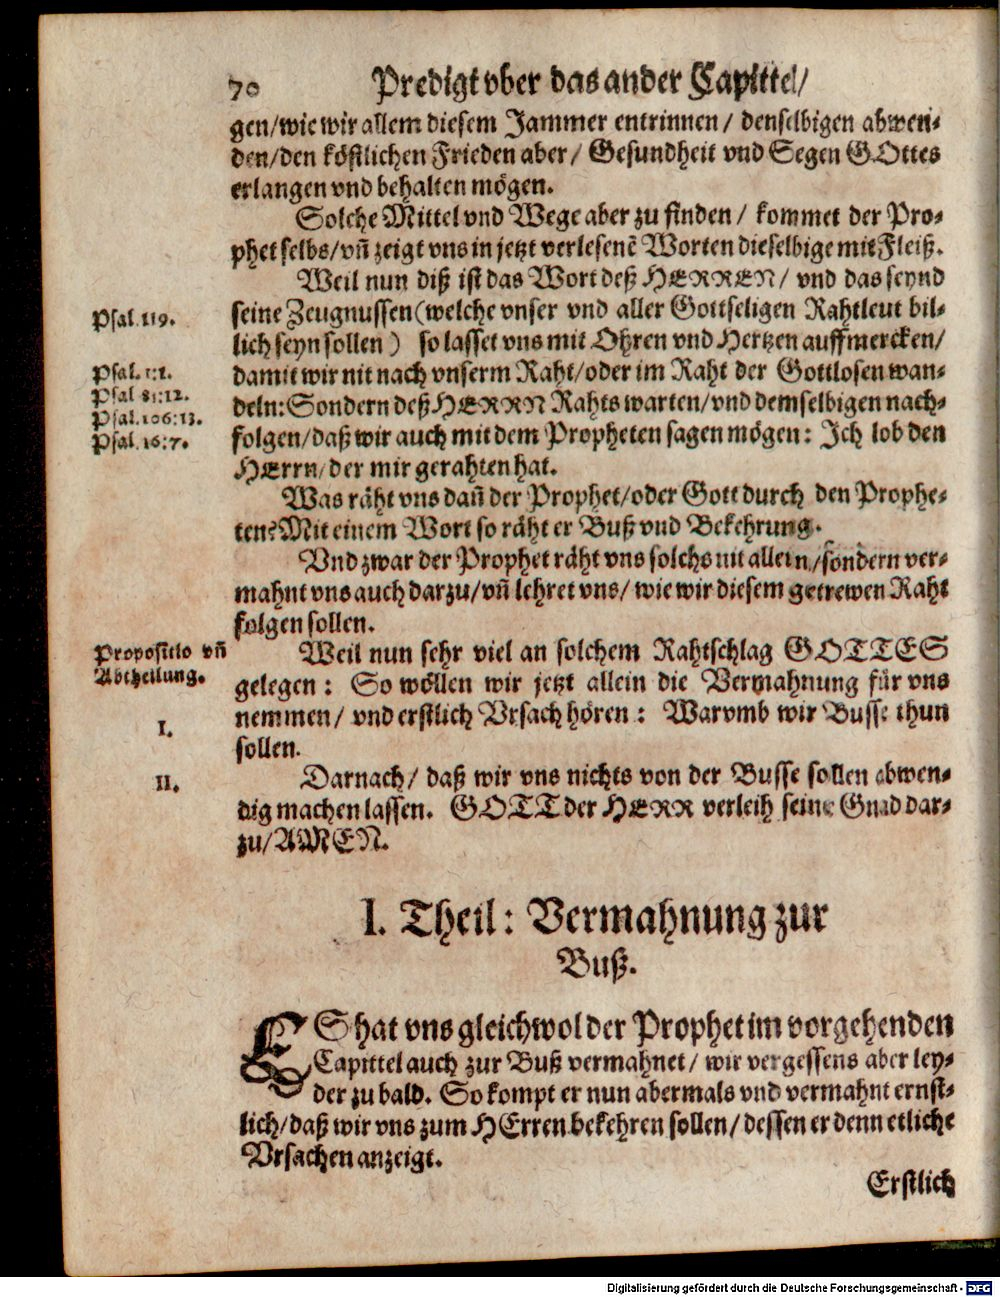 70 Predigt vber das ander Capittel/
gen/wie wir allem diesem Jammer entrinnen/ denselbigen abwen-
den/den köstlichen Frieden aber/ Gesundheit vnd Segen GOttes
erlangen vnd behalten mögen.
Solche Mittel vnd Wege aber zu finden/ kommet der Pro-
phet selbs/vñ zeigt vns in jetzt verlesenẽ Worten dieselbige mit Fleiß.
Weil nun diß ist das Wort deß HERREN/ vnd das seynd
Psal. 119.
seine Zeugnussen (welche vnser vnd aller Gottseligen Rahtleut bil-
lich seyn sollen) so lasset vns mit Ohren vnd Hertzen auffmercken/
Psal. 1:1.
damit wir nit nach vnserm Raht/oder im Raht der Gottlosen wan-
Psal 81:12.
deln: Sondern deß HERRN Rahts warten/vnd demselbigen nach-
Psal. 106:13.
Psal. 16:7.
folgen/daß wir auch mit dem Propheten sagen mögen: Ich lob den
HErrn/der mir gerahten hat.
Was räht vns dañ der Prophet/oder Gott durch den Prophe-
ten? Mit einem Wort so räht er Buß vnd Bekehrung.
Vnd zwar der Prophet räht vns solchs nit allein/sondern ver-
mahnt vns auch darzu/vñ lehret vns/ wie wir diesem getrewen Raht
folgen sollen.
Propositio vñ
Abtheilung.
Weil nun sehr viel an solchem Rahtschlag GOTTES
gelegen: So wöllen wir jetzt allein die Vermahnung für vns
I.
nemmen/ vnd erstlich Vrsach hören: Warvmb wir Busse thun
sollen.
II.
Darnach/ daß wir vns nichts von der Busse sollen abwen-
dig machen lassen. GOTT der HERR verleih seine Gnad dar-
zu/AMEN.
I. Theil: Vermahnung zur
Buß.
ES hat vns gleichwol der Prophet im vorgehenden
Capittel auch zur Buß vermahnet/ wir vergessens aber ley-
der zu bald. So kompt er nun abermals vnd vermahnt ernst-
lich/daß wir vns zum HErren bekehren sollen/dessen er denn etliche
Vrsachen anzeigt.
Erstlich
Digitalisierung gefördert durch die Deutsche Forschungsgemeinschaft - DFG